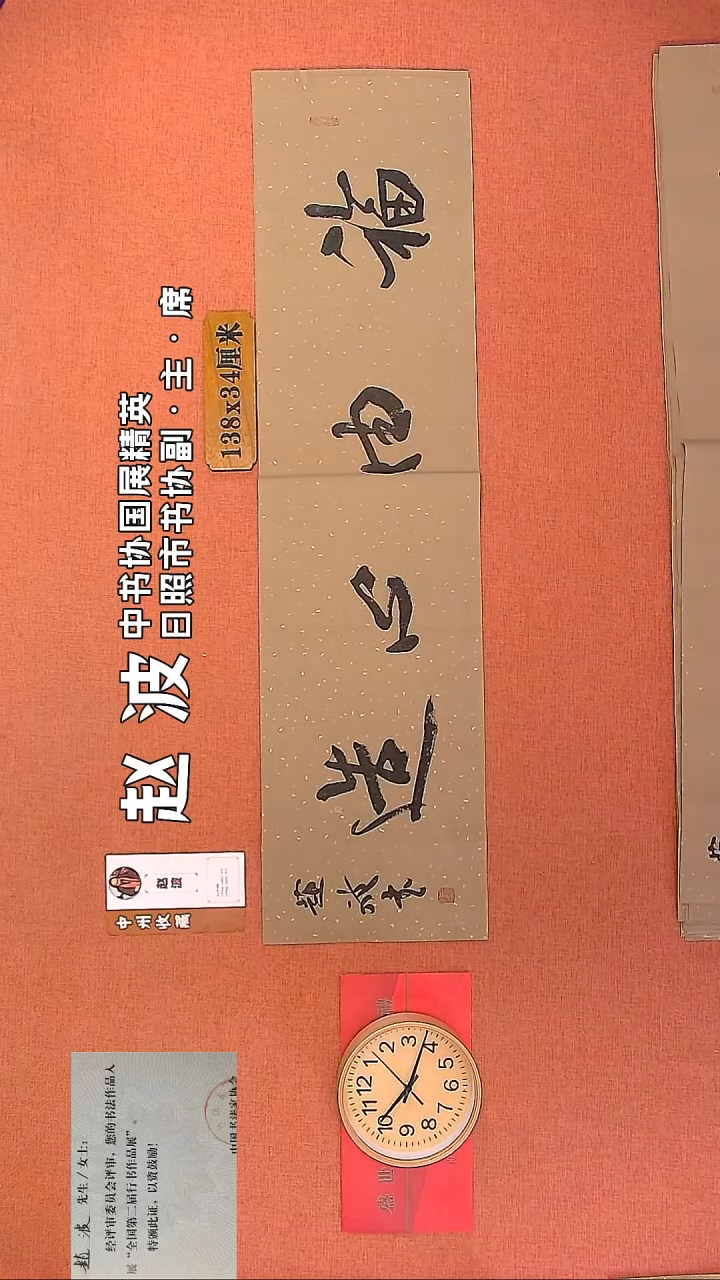 赵波
中书协国展精英
日照市书协副·主·席
138x34厘米
福由心造
趙波書
赵波
中州收藏
赵波 先生/女士:
经评审委员会评审,您的书法作品入
展“全国第二届行书作品展”。
特颁此证,以资鼓励!
中国书法家协会
盛世
12
1
2
3
4
5
6
7
8
9
10
11